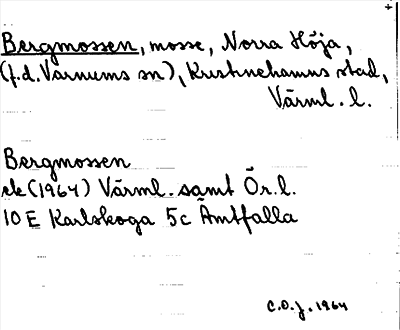 Bergmossen, mosse, Norra Höja,
(f.d. Varnums sn), Kristinehamns stad,
Värml. l.
Bergmossen
ek (1964) Värml. samt Ör. l.
10 E Karlskoga 5c Åmtfalla
C.O.J. 1964